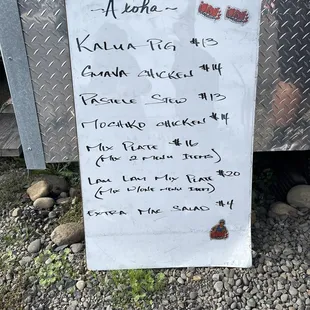 ~ Aloha ~
Kalua Pig $13
Guava Chicken $14
Pastele Stew $13
Mochiko Chicken $14
Mix Plate $16
(Mix 2 Menu Items)
Lau Lau Mix Plate $20
(Mix w/one menu Item)
Extra Mac Salad $4